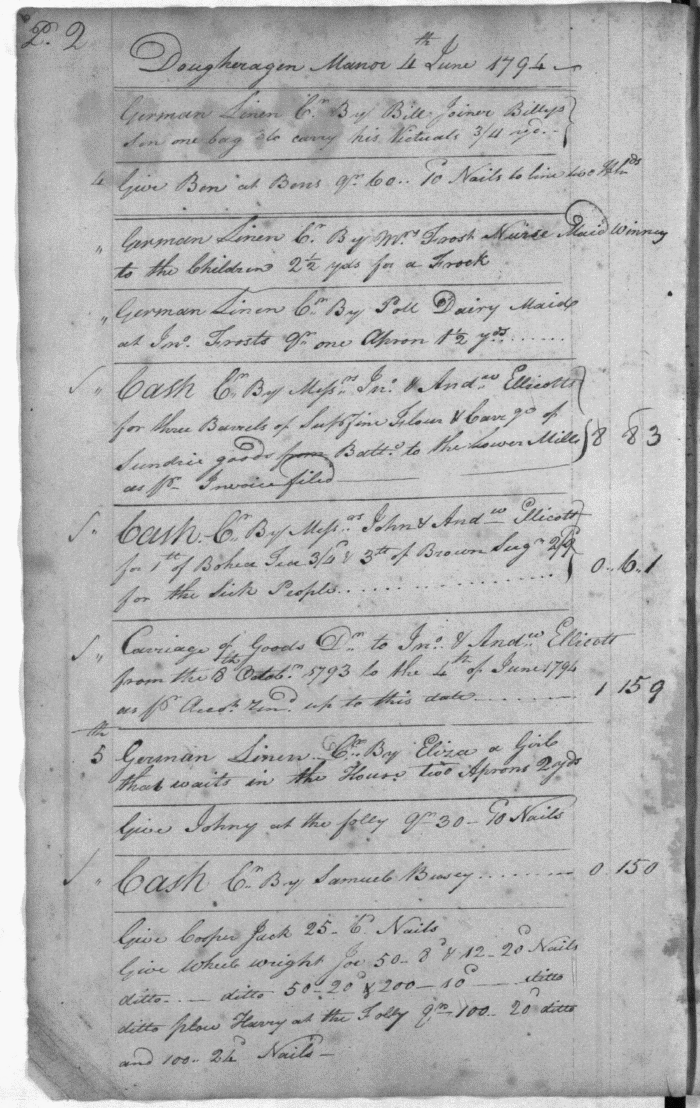 P. 2
Dougheragen Manor 4th June 1794
German Linen Cr. By Bill Joiner Billys
Son one bag to carry his Victuals 3/4 yd.
4 Give Ben at Bens Qr. 60.. 10 Nails to line two Hhds
" German Linen Cr. By Mrs Frosh Nurse Maid Winney
to the Children 2 1/2 yds for a Frock
" German Linen Cr. By Poll Dairy Maid
at Jno. Frosts Qr. one Apron 1 1/2 yds
" Cash Cr. By Messrs Jno. & Andw Ellicotts
for three Barrels of Supffine Flour & Carrge of
Sundrie goods from Balto to the Lower Mills 8 8 3
as pr Invoice filed
" Cash Cr. By Messrs John & Andw Ellicott
for 1 lb of Bohea Tea 3/4 & 3 lb of Brown Sugr
for the Sick People 0.. 6.. 1
" Carriage of Goods Dr. to Jno. & Andw Ellicott
from the 8th Octobr 1793 to the 4th of June 1794
as pr Acct. up to this date 1 15 9
5th German Linen Cr. By Eliza a Girl
that waits in the House two Aprons 2 yds
Give Johny at the folly Qr 30 - 10 Nails
" Cash Cr. By Samuel Busey 0 15 0
Give Cooper Jack 25 - 6d. Nails
Give Wheel wright Joe 50 - 8d & 12 - 20d Nails
ditto - ditto 50 - 20d & 200 - 10d - ditto
ditto plow Harry at the Folly Qr - 100 - 20d ditto
and 100 - 24 Nails